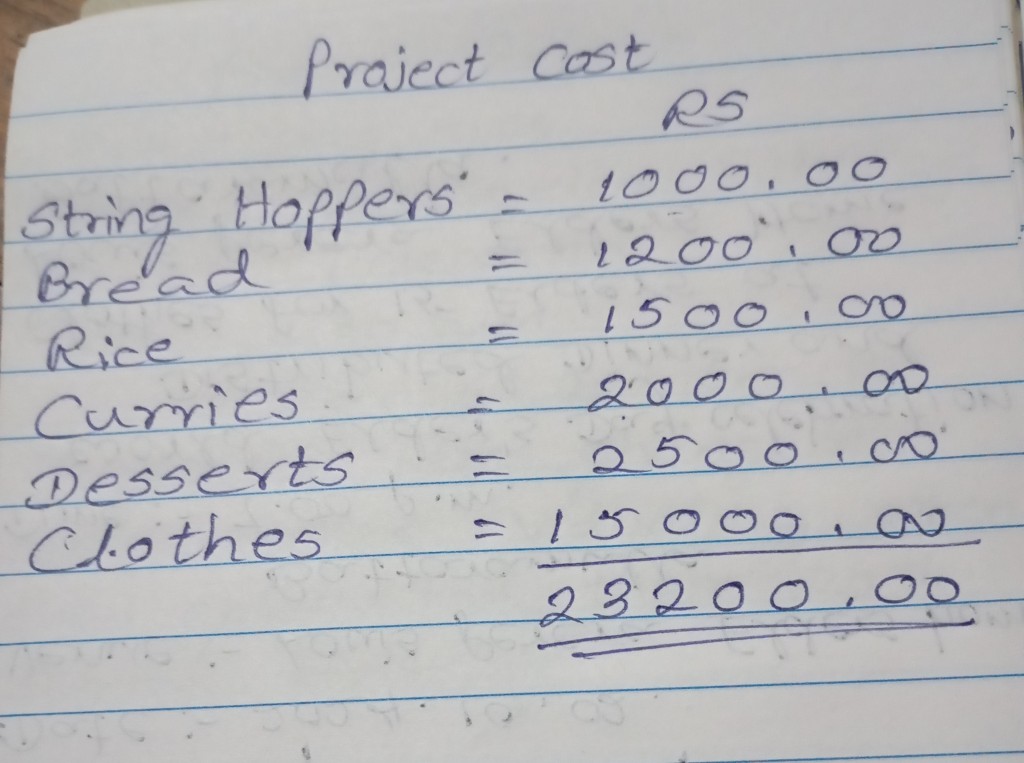 Project Cost
RS
String Hoppers = 1000.00
Bread = 1200.00
Rice = 1500.00
Curries = 2000.00
Desserts = 2500.00
Clothes = 15000.00
23200.00